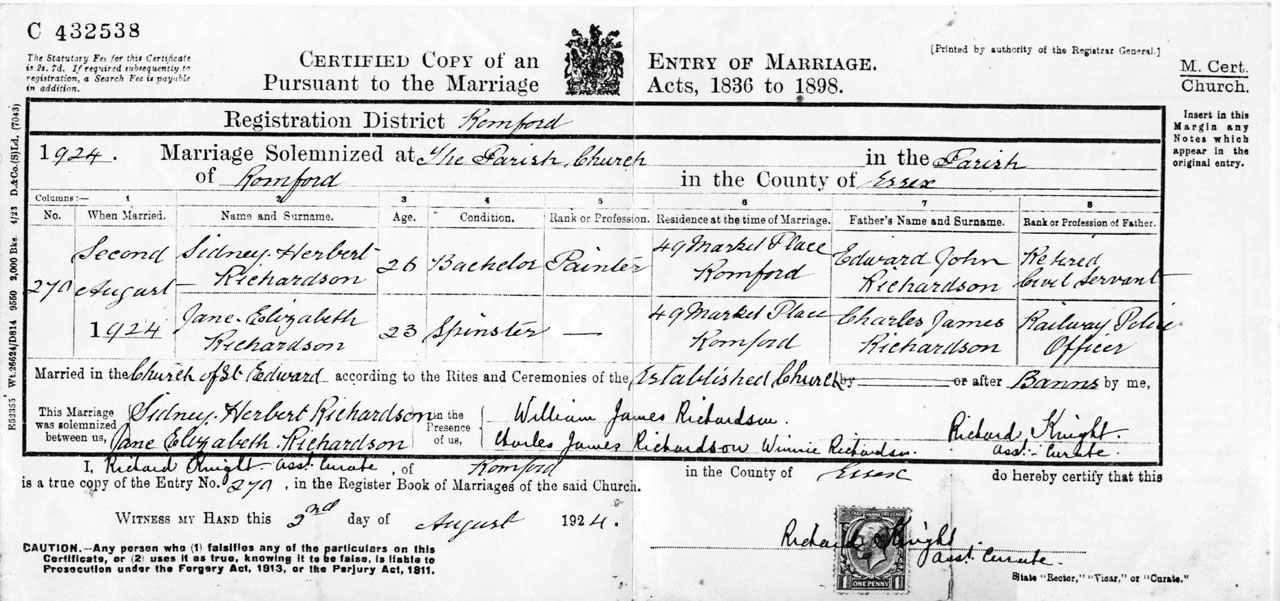 C 432538
The Statutory Fee for this Certificate
is 2s. 7d. If required subsequently to
registration, a Search Fee is payable
in addition.
CERTIFIED COPY of an ENTRY OF MARRIAGE.
Pursuant to the Marriage Acts, 1836 to 1898.
[Printed by authority of the Registrar General.]
M. Cert.
Church.
Insert in this
Margin any
Notes which
appear in the
original entry.
E52355 Wt.26624/D814 9550 2,000 Bks. 4/23 D.&Co.(S)Ld. (7043)
Registration District Romford
1924. Marriage Solemnized at The Parish Church in the Parish
of Romford in the County of Essex
Columns:— 1 2 3 4 5 6 7 8
No. When Married. Name and Surname. Age. Condition. Rank or Profession. Residence at the time of Marriage. Father's Name and Surname. Rank or Profession of Father.
270 Second August 1924
Sidney Herbert Richardson 26 Bachelor Painter 49 Market Place Romford Edward John Richardson Retired Civil Servant
Jane Elizabeth Richardson 23 Spinster — 49 Market Place Romford Charles James Richardson Railway Police Officer
Married in the Church of St Edward according to the Rites and Ceremonies of the Established Church by ——— or after Banns by me,
This Marriage
was solemnized
between us,
Sidney Herbert Richardson
Jane Elizabeth Richardson
in the
Presence
of us,
William James Richardson.
Charles James Richardson Winnie Richardson.
Richard Knight.
asst. Curate.
I, Richard Knight asst. Curate, of Romford in the County of Essex do hereby certify that this
is a true copy of the Entry No. 270, in the Register Book of Marriages of the said Church.
WITNESS MY HAND this 2nd day of August 1924.
Richard Knight
asst. Curate.
State "Rector," "Vicar," or "Curate."
CAUTION.—Any person who (1) falsifies any of the particulars on this
Certificate, or (2) uses it as true, knowing it to be false, is liable to
Prosecution under the Forgery Act, 1913, or the Perjury Act, 1911.
1 ONE PENNY 1